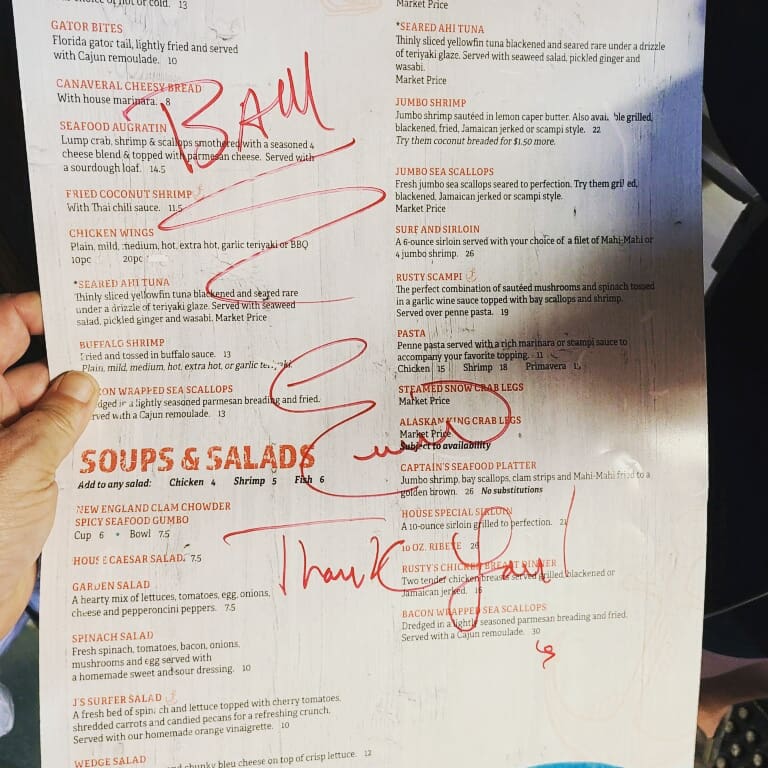 of hot or cold. 13
GATOR BITES
Florida gator tail, lightly fried and served
with Cajun remoulade. 10
CANAVERAL CHEESY BREAD
With house marinara. 8
SEAFOOD AUGRATIN
Lump crab, shrimp & scallops smothered with a seasoned 4
cheese blend & topped with parmesan cheese. Served with
a sourdough loaf. 14.5
FRIED COCONUT SHRIMP
With Thai chili sauce. 11.5
CHICKEN WINGS
Plain, mild, medium, hot, extra hot, garlic teriyaki or BBQ
10pc 20pc
*SEARED AHI TUNA
Thinly sliced yellowfin tuna blackened and seared rare
under a drizzle of teriyaki glaze. Served with seaweed
salad, pickled ginger and wasabi. Market Price
BUFFALO SHRIMP
Fried and tossed in buffalo sauce. 13
Plain, mild, medium, hot, extra hot, or garlic
WRAPPED SEA SCALLOPS
in a lightly seasoned parmesan breading and fried.
with a Cajun remoulade. 13
SOUPS & SALADS
Add to any salad: Chicken 4 Shrimp 5 Fish 6
NEW ENGLAND CLAM CHOWDER
SPICY SEAFOOD GUMBO
Cup 6 • Bowl 7.5
HOUSE CAESAR SALAD. 7.5
GARDEN SALAD
A hearty mix of lettuces, tomatoes, egg, onions,
cheese and pepperoncini peppers. 7.5
SPINACH SALAD
Fresh spinach, tomatoes, bacon, onions,
mushrooms and egg served with
a homemade sweet and sour dressing. 10
J'S SURFER SALAD
A fresh bed of spinach and lettuce topped with cherry tomatoes,
shredded carrots and candied pecans for a refreshing crunch.
Served with our homemade orange vinaigrette. 10
WEDGE SALAD
and chunky bleu cheese on top of crisp lettuce. 12
Market Price
*SEARED AHI TUNA
Thinly sliced yellowfin tuna blackened and seared rare under a drizzle
of teriyaki glaze. Served with seaweed salad, pickled ginger and
wasabi.
Market Price
JUMBO SHRIMP
Jumbo shrimp sautéed in lemon caper butter. Also available grilled,
blackened, fried, Jamaican jerked or scampi style. 22
Try them coconut breaded for $1.50 more.
JUMBO SEA SCALLOPS
Fresh jumbo sea scallops seared to perfection. Try them grilled,
blackened, Jamaican jerked or scampi style.
Market Price
SURF AND SIRLOIN
A 6-ounce sirloin served with your choice of a filet of Mahi-Mahi or
4 jumbo shrimp. 26
RUSTY SCAMPI
The perfect combination of sautéed mushrooms and spinach tossed
in a garlic wine sauce topped with bay scallops and shrimp.
Served over penne pasta. 19
PASTA
Penne pasta served with a rich marinara or scampi sauce to
accompany your favorite topping. 11
Chicken 15 Shrimp 18 Primavera
STEAMED SNOW CRAB LEGS
Market Price
ALASKAN KING CRAB LEGS
Market Price
Subject to availability
CAPTAIN'S SEAFOOD PLATTER
Jumbo shrimp, bay scallops, clam strips and Mahi-Mahi fried to a
golden brown. 26 No substitutions
HOUSE SPECIAL SIRLOIN
A 10-ounce sirloin grilled to perfection. 21
10 OZ. RIBEYE 26
RUSTY'S CHICKEN BREAST DINNER
Two tender chicken breasts served grilled, blackened or
Jamaican jerked. 16
BACON WRAPPED SEA SCALLOPS
Dredged in a lightly seasoned parmesan breading and fried.
Served with a Cajun remoulade. 30
BAM
Thank you!